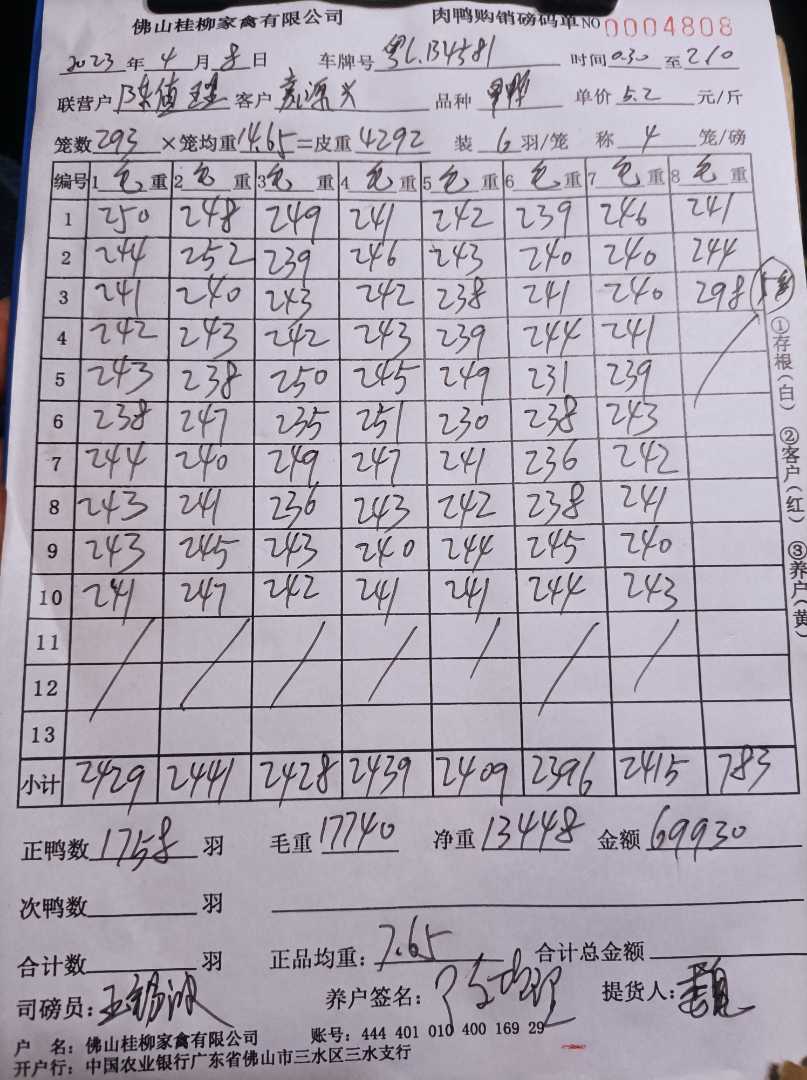 佛山桂柳家禽有限公司 肉鸭购销磅码单 NO 0004808
2023 年 4 月 8 日 车牌号 粤L.B4581 时间 0.30 至 2.10
联营户 陈值 客户 源兴 品种 单价 5.2 元/斤
笼数 293 ×笼均重 14.65 =皮重 4292 装 6 羽/笼 称 4 笼/磅
编号 1 毛 重 2 毛 重 3 毛 重 4 毛 重 5 毛 重 6 毛 重 7 毛 重 8 毛 重
1 250 248 249 241 242 239 246 241
2 244 252 239 246 243 240 240 244
3 241 240 243 242 238 241 240 298
4 242 243 242 243 239 244 241
5 243 238 250 245 249 231 239
6 238 247 235 251 230 238 243
7 244 240 249 247 241 236 242
8 243 241 236 243 242 238 241
9 243 245 243 240 244 245 240
10 241 247 242 241 241 244 243
11
12
13
小计 2429 2441 2428 2439 2409 2396 2415 783
①存根(白) ②客户(红) ③养户(黄)
正鸭数 1758 羽 毛重 17740 净重 13448 金额 69930
次鸭数 羽
合计数 羽 正品均重: 7.65 合计总金额
司磅员: 王 养户签名: 提货人:
户 名: 佛山桂柳家禽有限公司 账号: 444 401 010 400 169 29
开户行: 中国农业银行广东省佛山市三水区三水支行